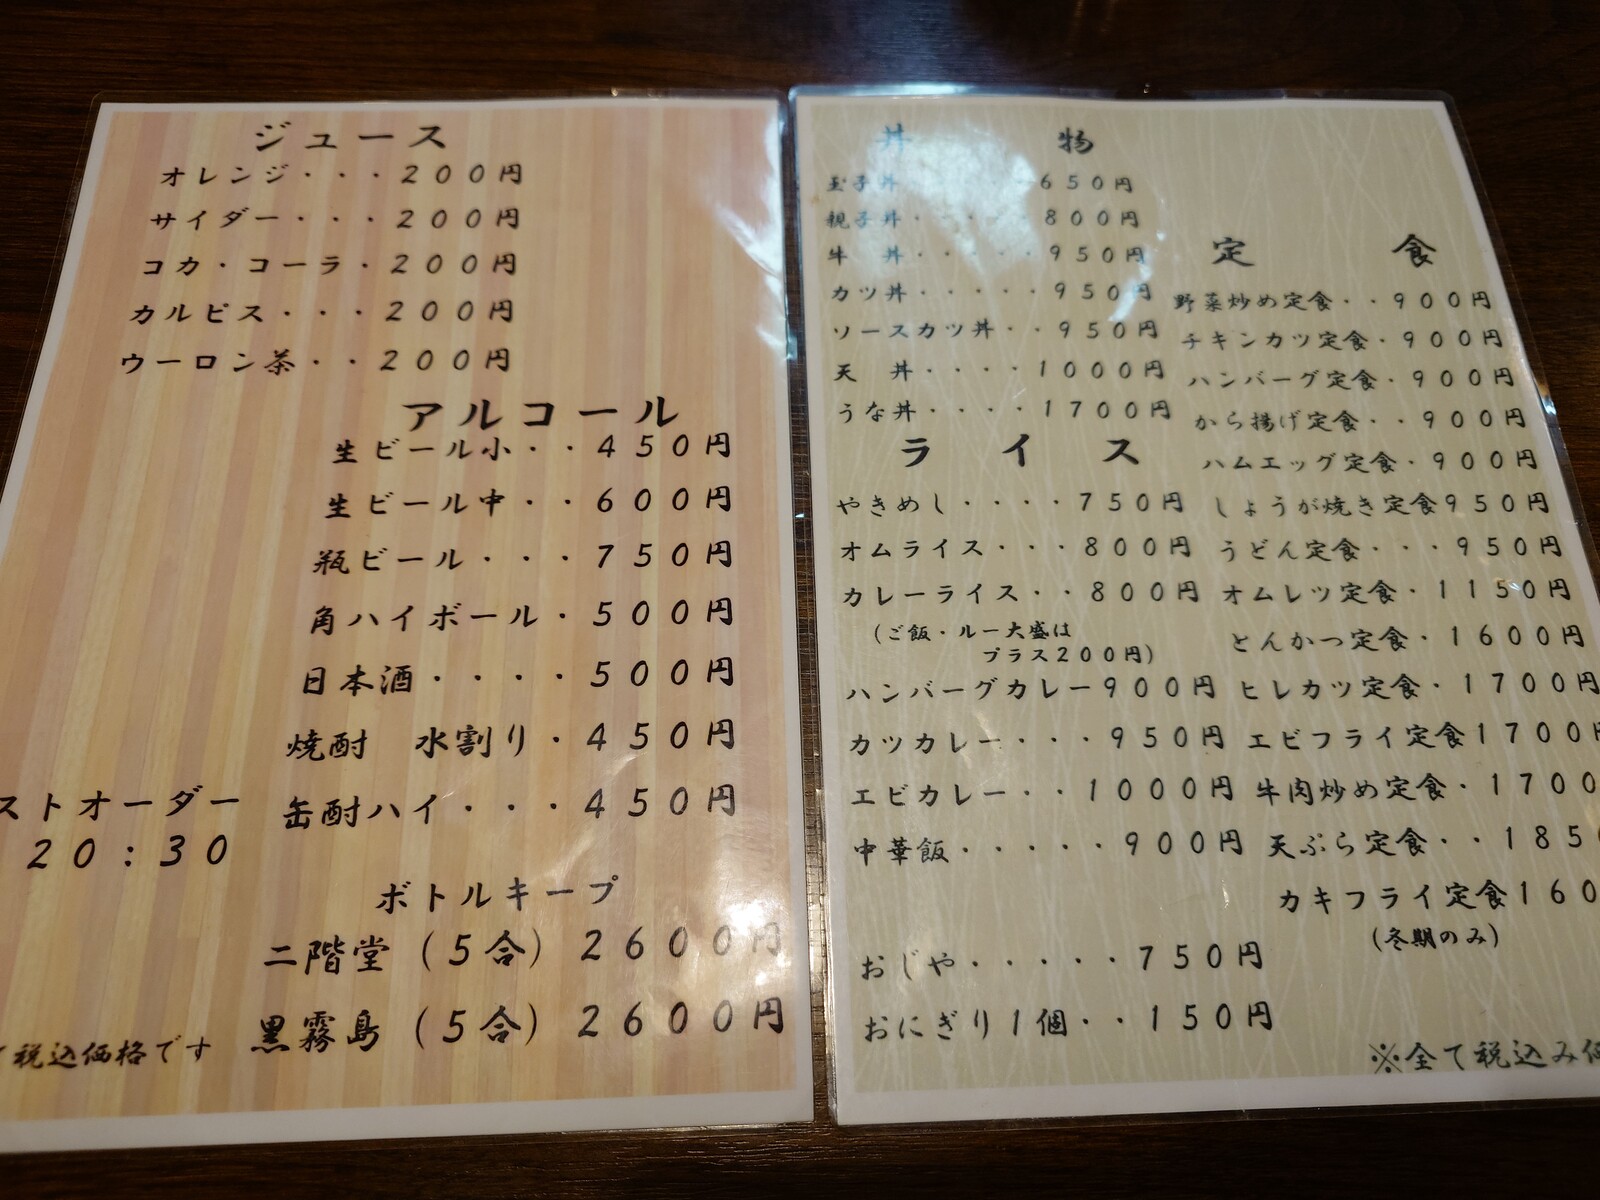 ジュース
オレンジ・・・200円
サイダー・・・200円
コカ・コーラ・200円
カルピス・・・200円
ウーロン茶・・200円
アルコール
生ビール小・・450円
生ビール中・・600円
瓶ビール・・・750円
角ハイボール・500円
日本酒・・・・500円
焼酎　水割り・450円
缶酎ハイ・・・450円
ストオーダー
20:30
ボトルキープ
二階堂（5合）2600円
黒霧島（5合）2600円
て税込価格です
丼　物
玉子丼・・・・・650円
親子丼・・・・・800円
牛　丼・・・・・950円
カツ丼・・・・・950円
ソースカツ丼・・950円
天　丼・・・・1000円
うな丼・・・・1700円
ライス
やきめし・・・・750円
オムライス・・・800円
カレーライス・・800円
（ご飯・ルー大盛は
プラス200円）
ハンバーグカレー900円
カツカレー・・・950円
エビカレー・・1000円
中華飯・・・・・900円
おじや・・・・・750円
おにぎり1個・・150円
定　食
野菜炒め定食・・900円
チキンカツ定食・900円
ハンバーグ定食・900円
から揚げ定食・・900円
ハムエッグ定食・900円
しょうが焼き定食950円
うどん定食・・・950円
オムレツ定食・1150円
とんかつ定食・1600円
ヒレカツ定食・1700円
エビフライ定食1700円
牛肉炒め定食・1700
天ぷら定食・・1850
カキフライ定食160
（冬期のみ）
※全て税込み価